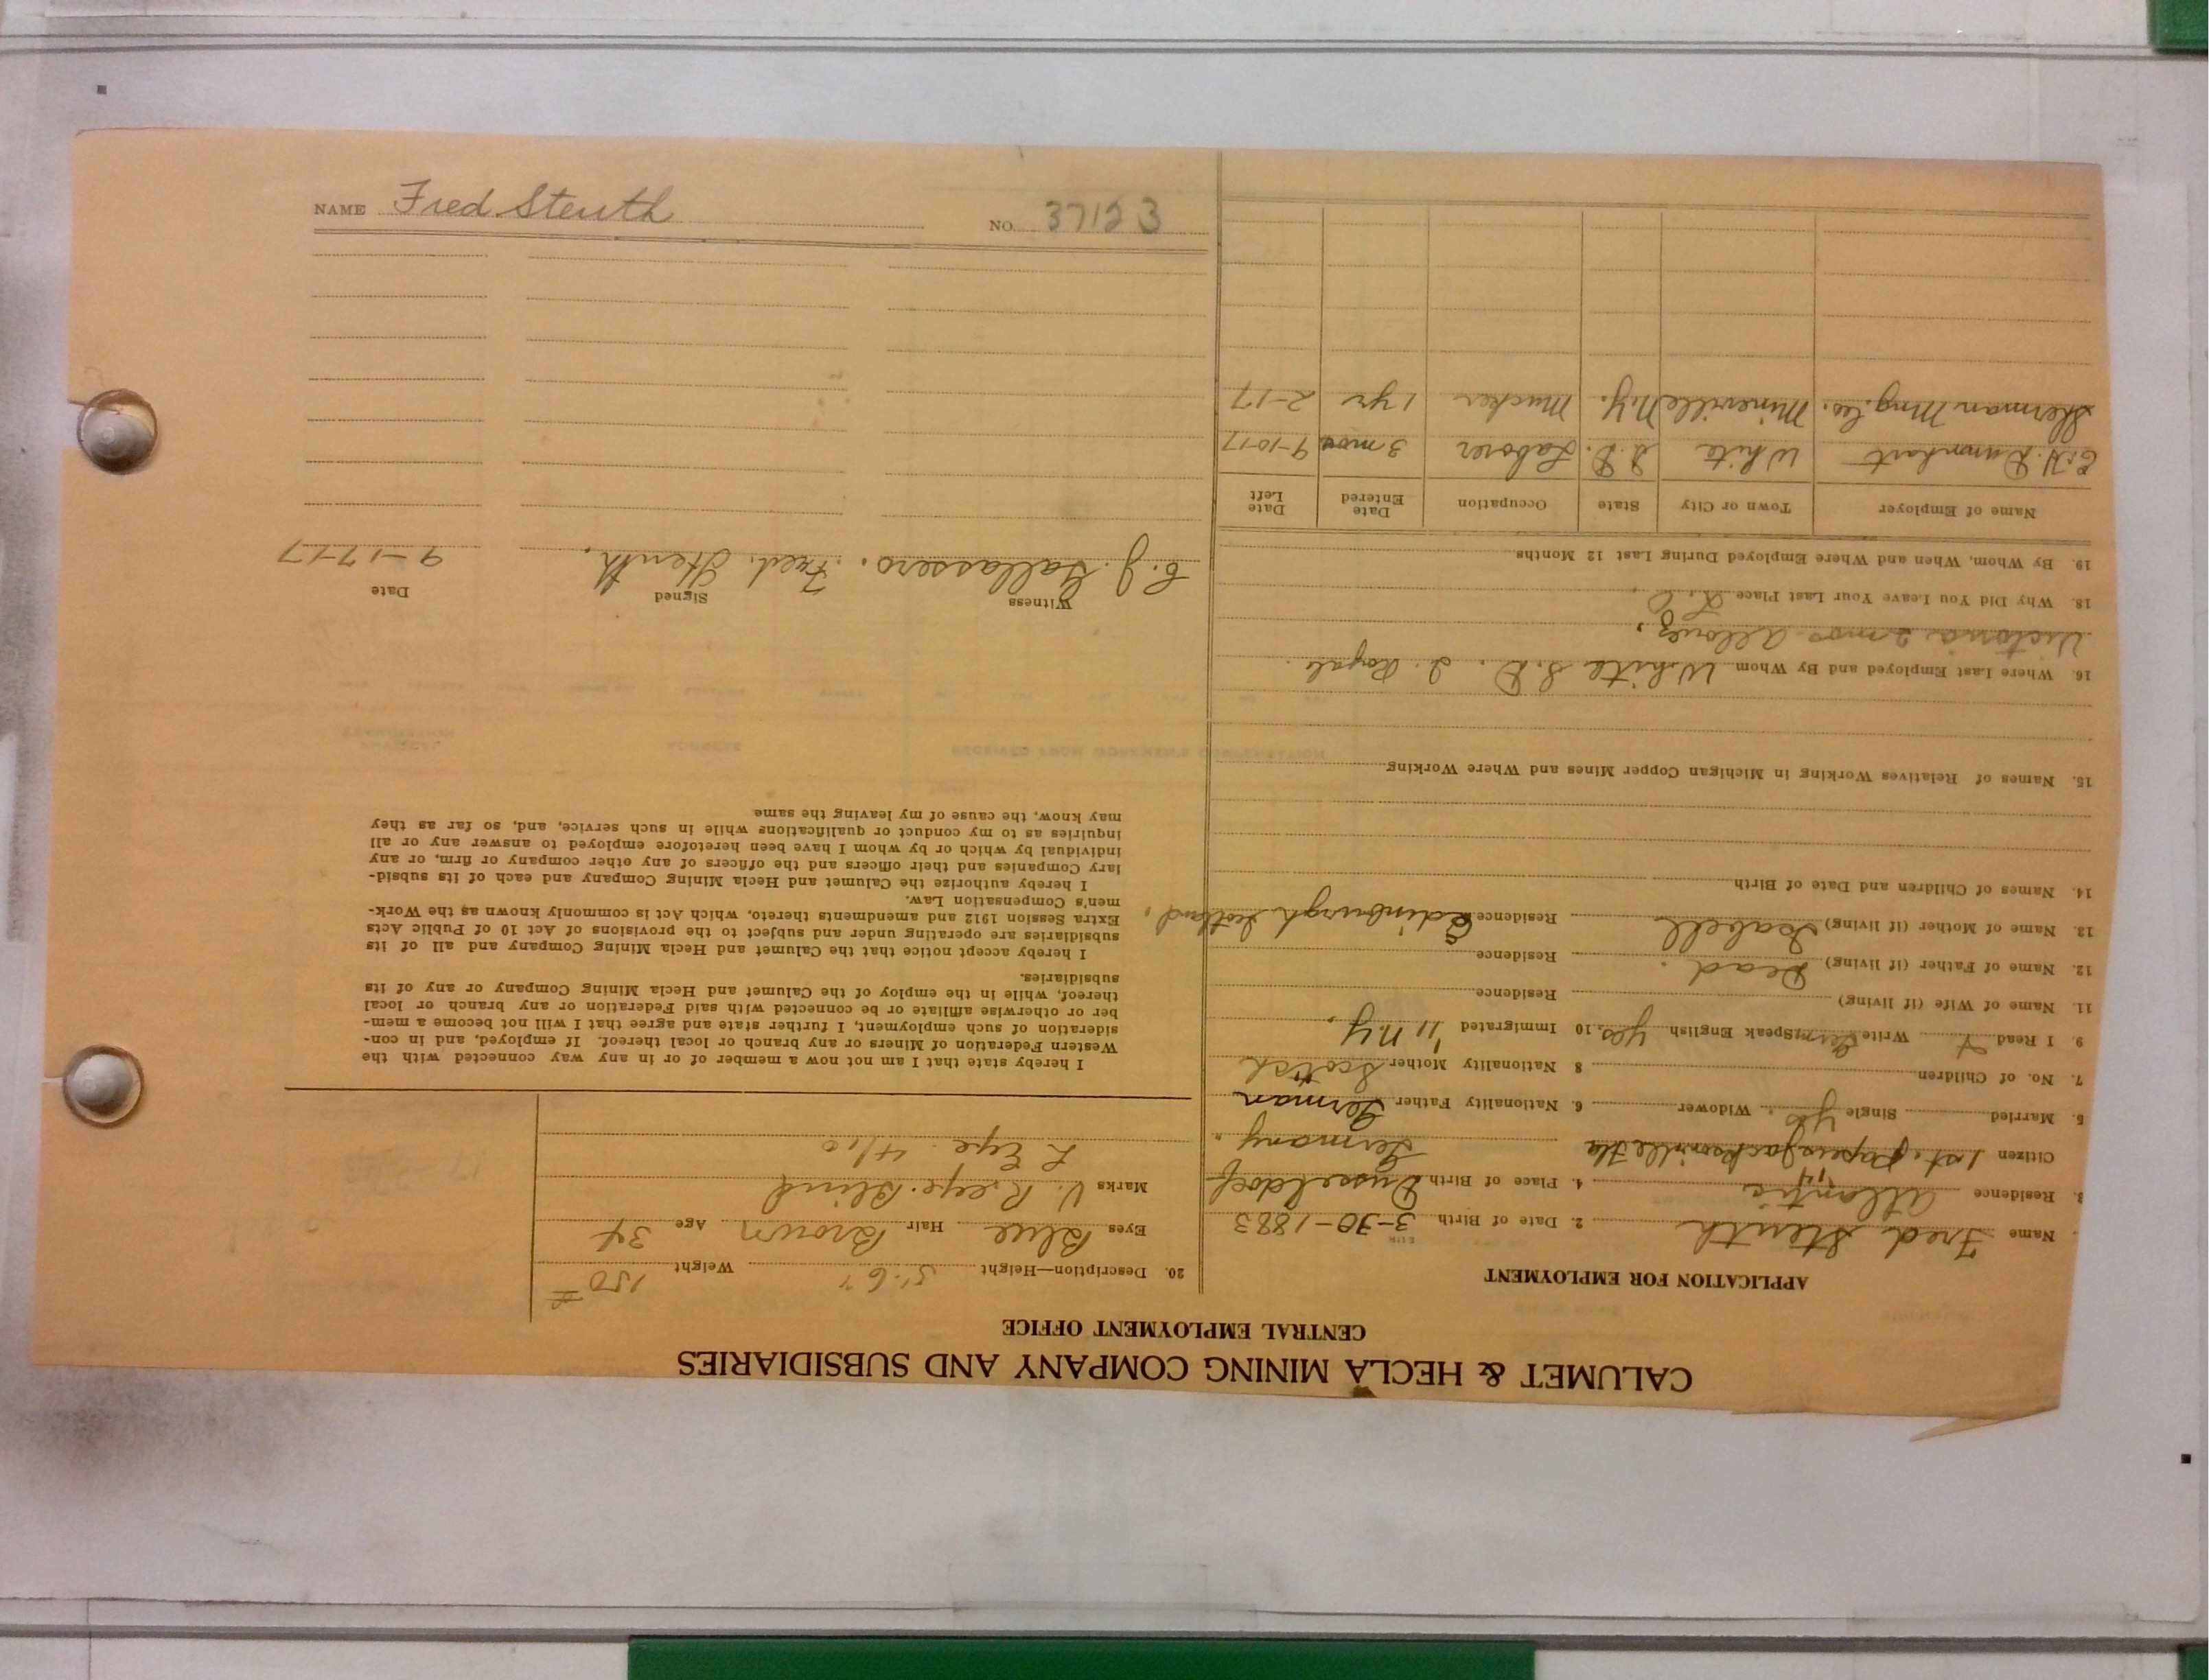 CALUMET & HECLA MINING COMPANY AND SUBSIDIARIES
CENTRAL EMPLOYMENT OFFICE
APPLICATION FOR EMPLOYMENT
Name Fred Stenth 2. Date of Birth 3-30-1883
3. Residence Atlantic 4. Place of Birth Dusseldorf
Citizen 1st. papers Jacksonville Fla '14 Germany.
5. Married Single yes. Widower 6. Nationality Father German
7. No. of Children 8 Nationality Mother Scotch
9. I Read Write Germ Speak English yes. 10 Immigrated '11 N.Y.
11. Name of Wife (if living) Residence
12. Name of Father (if living) Dead. Residence
13. Name of Mother (if living) Isabell Residence Edinburgh Scotland.
14. Names of Children and Date of Birth
15. Names of Relatives Working in Michigan Copper Mines and Where Working
16. Where Last Employed and By Whom White S.D. I. Royale.
Victoria 2 mos Allouez.
18. Why Did You Leave Your Last Place
19. By Whom, When and Where Employed During Last 12 Months
Name of Employer Town or City State Occupation Date Entered Date Left
E.H. White S.D. Laborer 3 mos 9-10-17
Sherman Mng. Co. Mineville N.Y. Mucker 1 yr 2-17
20. Description—Height 5'-6" Weight 150#
Eyes Blue Hair Brown Age 34
Marks V. R. eye. Blind
L Eye 4/10
I hereby state that I am not now a member of or in any way connected with the
Western Federation of Miners or any branch or local thereof. If employed, and in con-
sideration of such employment, I further state and agree that I will not become a mem-
ber or otherwise affiliate or be connected with said Federation or any branch or local
thereof, while in the employ of the Calumet and Hecla Mining Company or any of its
subsidiaries.
I hereby accept notice that the Calumet and Hecla Mining Company and all of its
subsidiaries are operating under and subject to the provisions of Act 10 of Public Acts
Extra Session 1912 and amendments thereto, which Act is commonly known as the Work-
men's Compensation Law.
I hereby authorize the Calumet and Hecla Mining Company and each of its subsid-
iary Companies and their officers and the officers of any other company or firm, or any
individual by which or by whom I have been heretofore employed to answer any or all
inquiries as to my conduct or qualifications while in such service, and, so far as they
may know, the cause of my leaving the same.
Witness Signed Date
E.J. Gallassero. Fred. Stenth. 9-17-17
NAME Fred Stenth NO. 37123